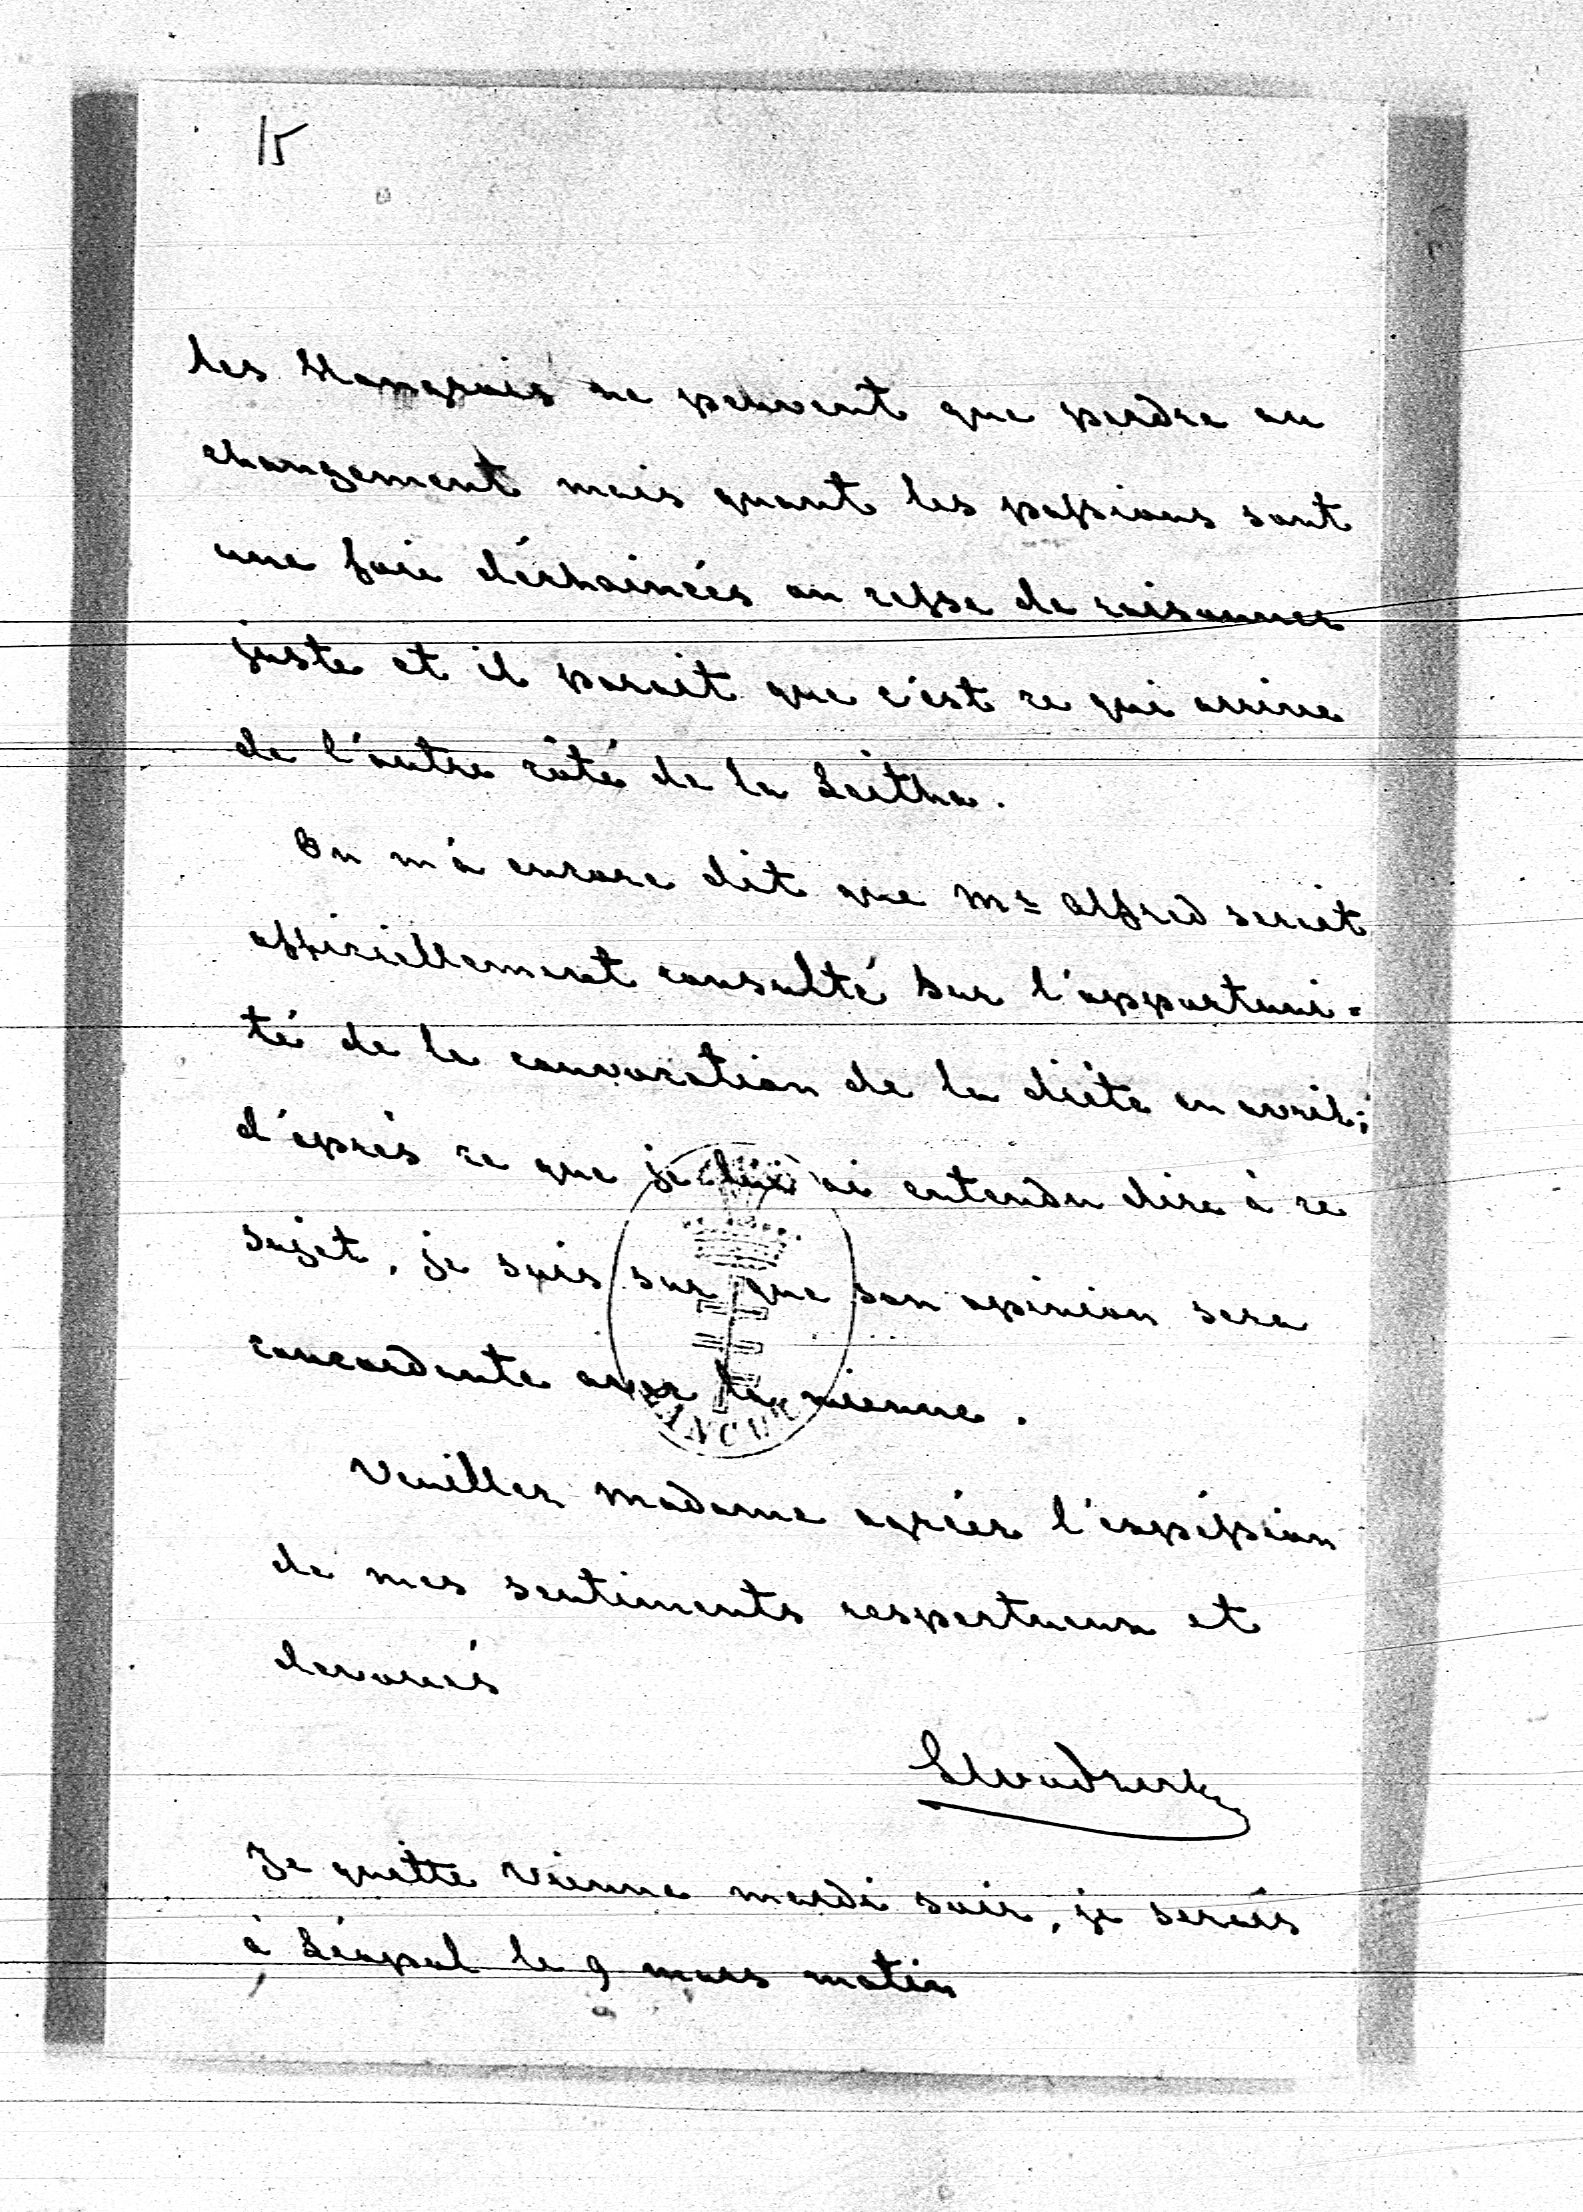 15
les Hongrois ne peuvent que perdre au
changement mais quant les passions sont
une fois déchainées on cesse de raisonner
juste et il parait que c'est ce qui arrive
de l'autre côté de la Leitha.
On m'a encore dit que Mr Alfred serait
officiellement consulté sur l'opportuni-
té de la convocation de la diète en avril;
d'après ce que je lui ai entendu dire à ce
sujet, je suis sur que son opinion sera
concordante avec la mienne.
Veuillez Madame agréer l'expression
de mes sentiments respectueux et
devoués
Je quitte Vienne mardi soir, je serais
à Léopol le 9 mars matin